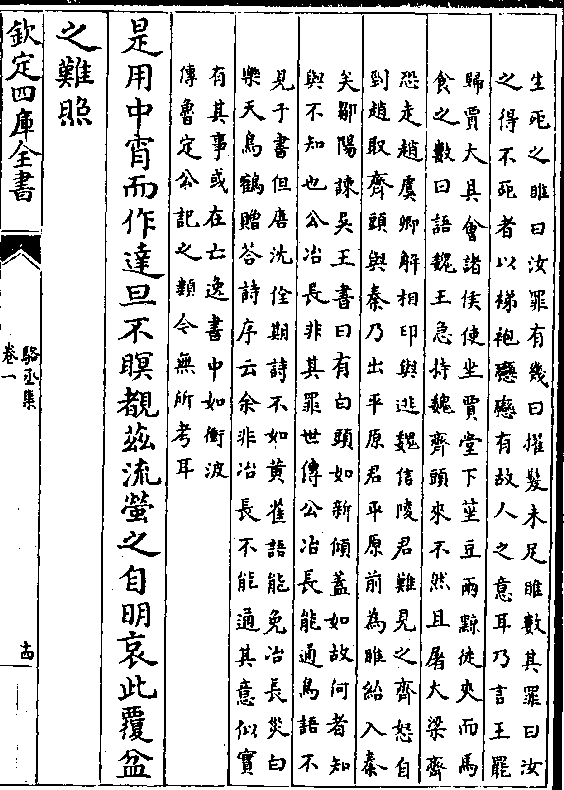 生死之睢曰汝罪有幾曰擢髮未足睢數其罪曰汝
之得不死者以綈袍戀戀有故人之意耳乃言王罷
歸賈大具會諸侯使坐賈堂下莝豆兩黥徒夾而馬
食之數曰語魏王急持魏齊頭來不然且屠大梁齊
恐走趙虞卿解相印與逃魏信陵君難見之齊怒自
到趙取齊頭與秦乃出平原君平原前為睢紿入秦
矣鄒陽諫吳王書曰有白頭如新傾蓋如故何者知
與不知也公冶長非其罪世傳公冶長能通鳥語不
見于書但唐沈佺期詩不如黃雀語能免冶長災白
樂天鳥鶴贈答詩序云余非冶長不能通其意似實
有其事或在亡逸書中如衡波
傳魯定公記之類今無所考耳
是用中宵而作達旦不瞑覩茲流螢之自明哀此覆盆
之難照
欽定四庫全書
駱丞集
卷一
十四